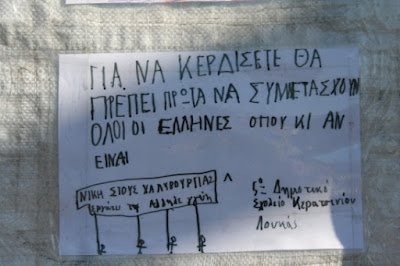 ΓΙΑ ΝΑ ΚΕΡΔΙΣΕΤΕ ΘΑ
ΠΡΕΠΕΙ ΠΡΩΤΑ ΝΑ ΣΥΜΜΕΤΑΣΧΟΥΝ
ΟΛΟΙ ΟΙ ΕΛΛΗΝΕΣ ΟΠΟΥ ΚΙ ΑΝ
ΕΙΝΑΙ
ΝΙΚΗ ΣΤΟΥΣ ΧΑΛΥΒΟΥΡΓΙΑΣ
εργάτες της
5ο Δημοτικό
Σχολείο Κερατσινίου
Λουκάς